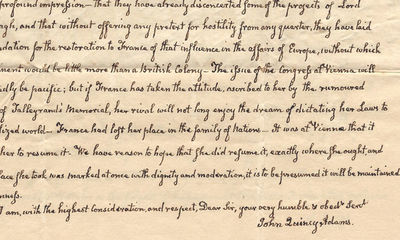 profound impression - that they have already disconcerted some of the projects of Lord
agh, and that without offering any pretext for hostility from any quarter, they have laid
dation for the restoration to France of that influence in the affairs of Europe, without which
ment would be little more than a British Colony - The issue of the Congress at Vienna will
dly be pacific; but if France has taken the attitude, ascribed to her by the rumoured
of Talleyrand's Memorial, her rival will not long enjoy the dream of dictating her Laws to
ilized world - France had lost her place in the family of Nations - It was at Vienna that it
her to resume it. We have reason to hope that She did resume it, exactly where She ought, and
lace She took was marked at once with dignity and moderation, it is to be presumed it will be maintained
nness.
I am, with the highest consideration, and respect, Dear Sir, your very humble & obedt Servt
John Quincy Adams.